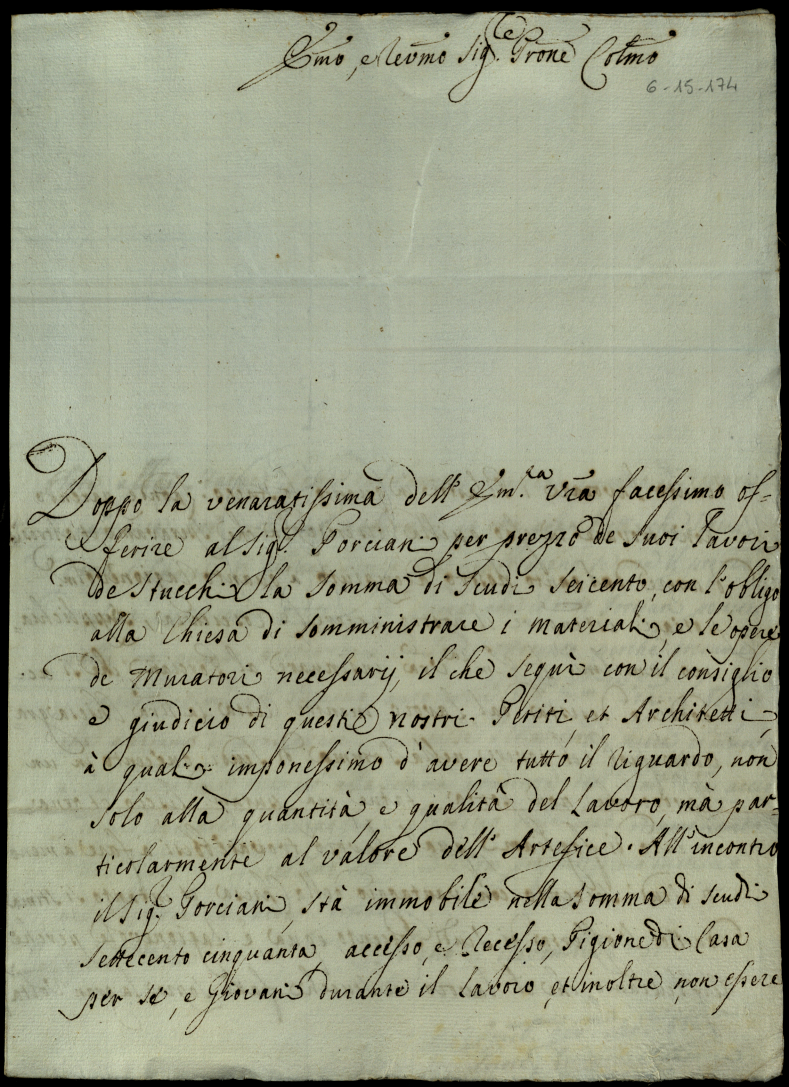 Emo, e Revmo Sig.re Prone Colmo
6-15-174
Doppo la venaratissima dell' Em.za Vra facessimo of-
ferire al Sig.r Porciani per prezzo de suoi Lavori
de Stucchi la somma di scudi seicento, con l'obligo
alla Chiesa di somministrare i materiali, e le opere
de Muratori necessarij, il che seguì con il consiglio
e giudicio di questi nostri Periti, et Architetti,
à quali imponessimo d'avere tutto il riguardo, non
solo alla quantità, e qualità del Lavoro, mà par-
ticolarmente al valore dell' Artefice. All'incontro
il Sig.r Porciani stà immobile nella somma di scudi
settecento cinquanta, accesso, e Recesso, Pigione di Casa
per se, e Giovani durante il Lavoro, et inoltre non essere